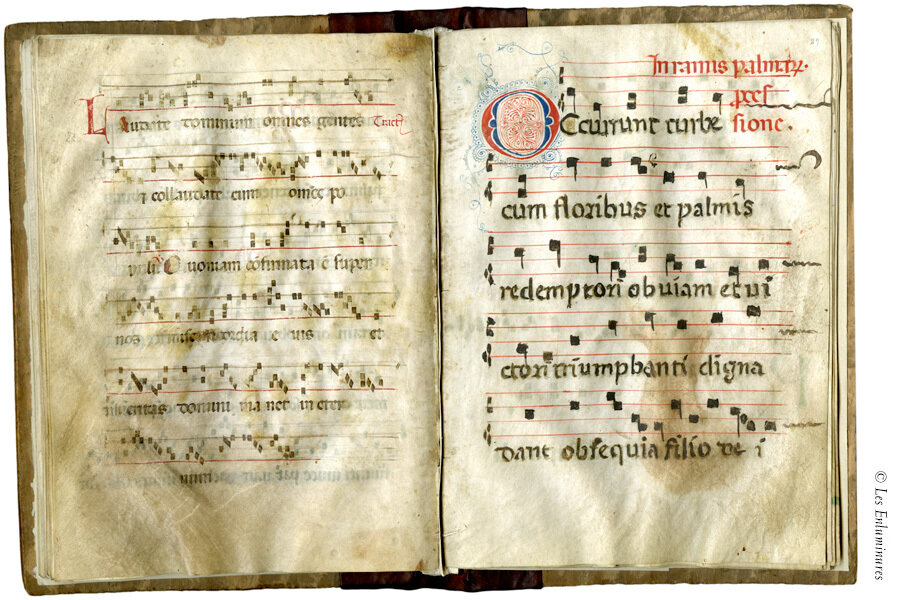 Laudate dominum omnes gentes Tract
collaudate eum omēs po
puli Quoniam cōfirmata ē super
nos misericordia eius et
ueritas domini manet in eter
In ramis palmaꝝ.
Occurrunt turbe ꝓces
sione.
cum floribus et palmis
redemptori obuiam et ui
ctori triumphanti digna
dant obsequia filio de i
© Les Enluminures